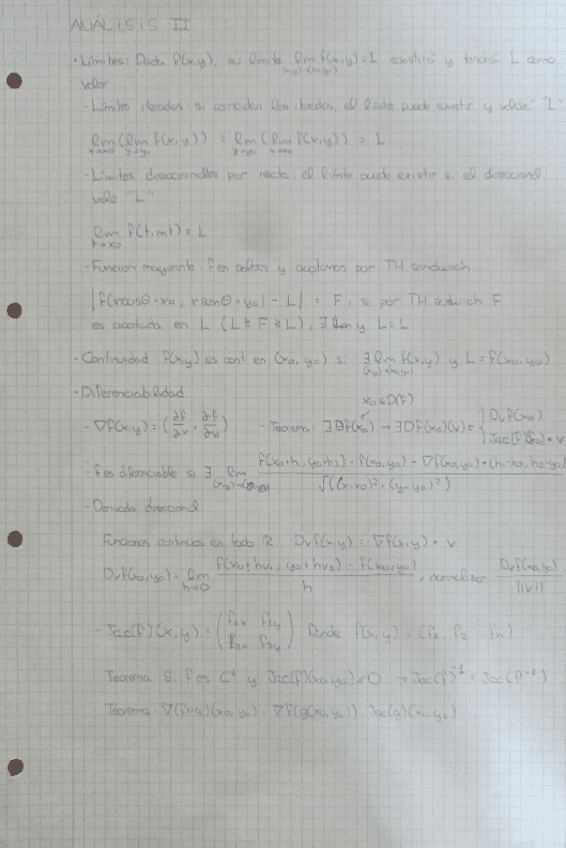 ANÁLISIS II
· Límites: Dada f(x,y), su límite lim f(x,y) = L existirá y tendrá L como
(x,y)→(x₀,y₀)
valor
- Límites iterados: si coinciden los iterados, el límite puede existir y vale "L"
lim (lim f(x,y)) = lim (lim f(x,y)) = L
x→x₀ y→y₀ y→y₀ x→x₀
- Límites direccionales por recta: el límite puede existir si el direccional
vale "L"
lim f(t, mt) = L
t→x₀
- Función mayorante f en polares y acotamos por TH sandwich
|f(rcosθ + x₀, rsenθ + y₀) - L| = F, si por TH sandwich F
es acotada en L (L ≥ F ≥ L), ∃ lim y L = L
· Continuidad f(x,y) es cont en (x₀, y₀) si: ∃ lim f(x,y) y L = f(x₀, y₀)
· Diferenciabilidad
x₀ ∈ D(f)
- ∇f(x,y) = (∂f/∂x, ∂f/∂y) - Teorema: ∃ Df(x₀) → ∃ Df(x₀)(v) = { Dvf(x₀)
Jac(f)(x₀)·v
- f es diferenciable si ∃ lim f(x₀+h₁, y₀+h₂) - f(x₀,y₀) - ∇f(x₀,y₀)·(h₁-x₀, h₂-y₀)
√((x-x₀)² + (y-y₀)²)
- Derivada direccional
Funciones continuas en todo ℝ Dvf(x,y) = ∇f(x,y) · v
Dvf(x₀,y₀) = lim f(x₀+hv₁, y₀+hv₂) - f(x₀,y₀) , normalizar Dvf(x₀,y₀)
h→0 h ||v||
- Jac(f)(x,y) = (f₁ₓ f₁y
f₂ₓ f₂y) Donde f(x,y) = (f₁, f₂ ... fn)
Teorema Si f es C¹ y Jac(f)(x₀,y₀) ≠ 0 → Jac(f)⁻¹ = Jac(f⁻¹)
Teorema ∇(f∘g)(x₀,y₀) = ∇f(g(x₀,y₀)) · Jac(g)(x₀,y₀)